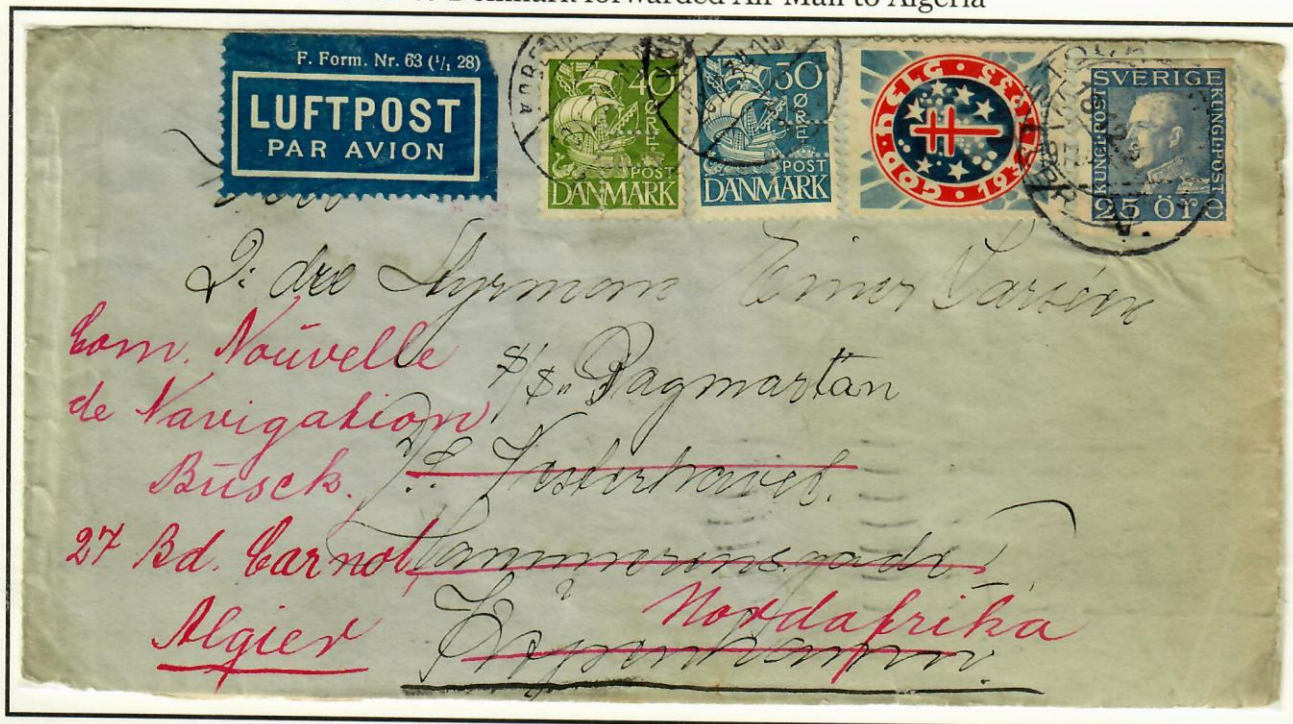 Denmark forwarded Air Mail to Algeria
F. Form. Nr. 63 (1/1 28)
LUFTPOST
PAR AVION
40
ØRE
POST
DANMARK
30
ØRE
POST
DANMARK
GOD HELG 1932-1933
SVERIGE
KUNGL·POST
KUNGL·POST
25 ÖRE
Styrman Einer Larsén
S/S "Dagmartan
Com. Nouvelle
de Navigation
Busck.
Vesterhavet.
27 Bd. Carnot
Algier
Nordafrika
Köpenhamn.